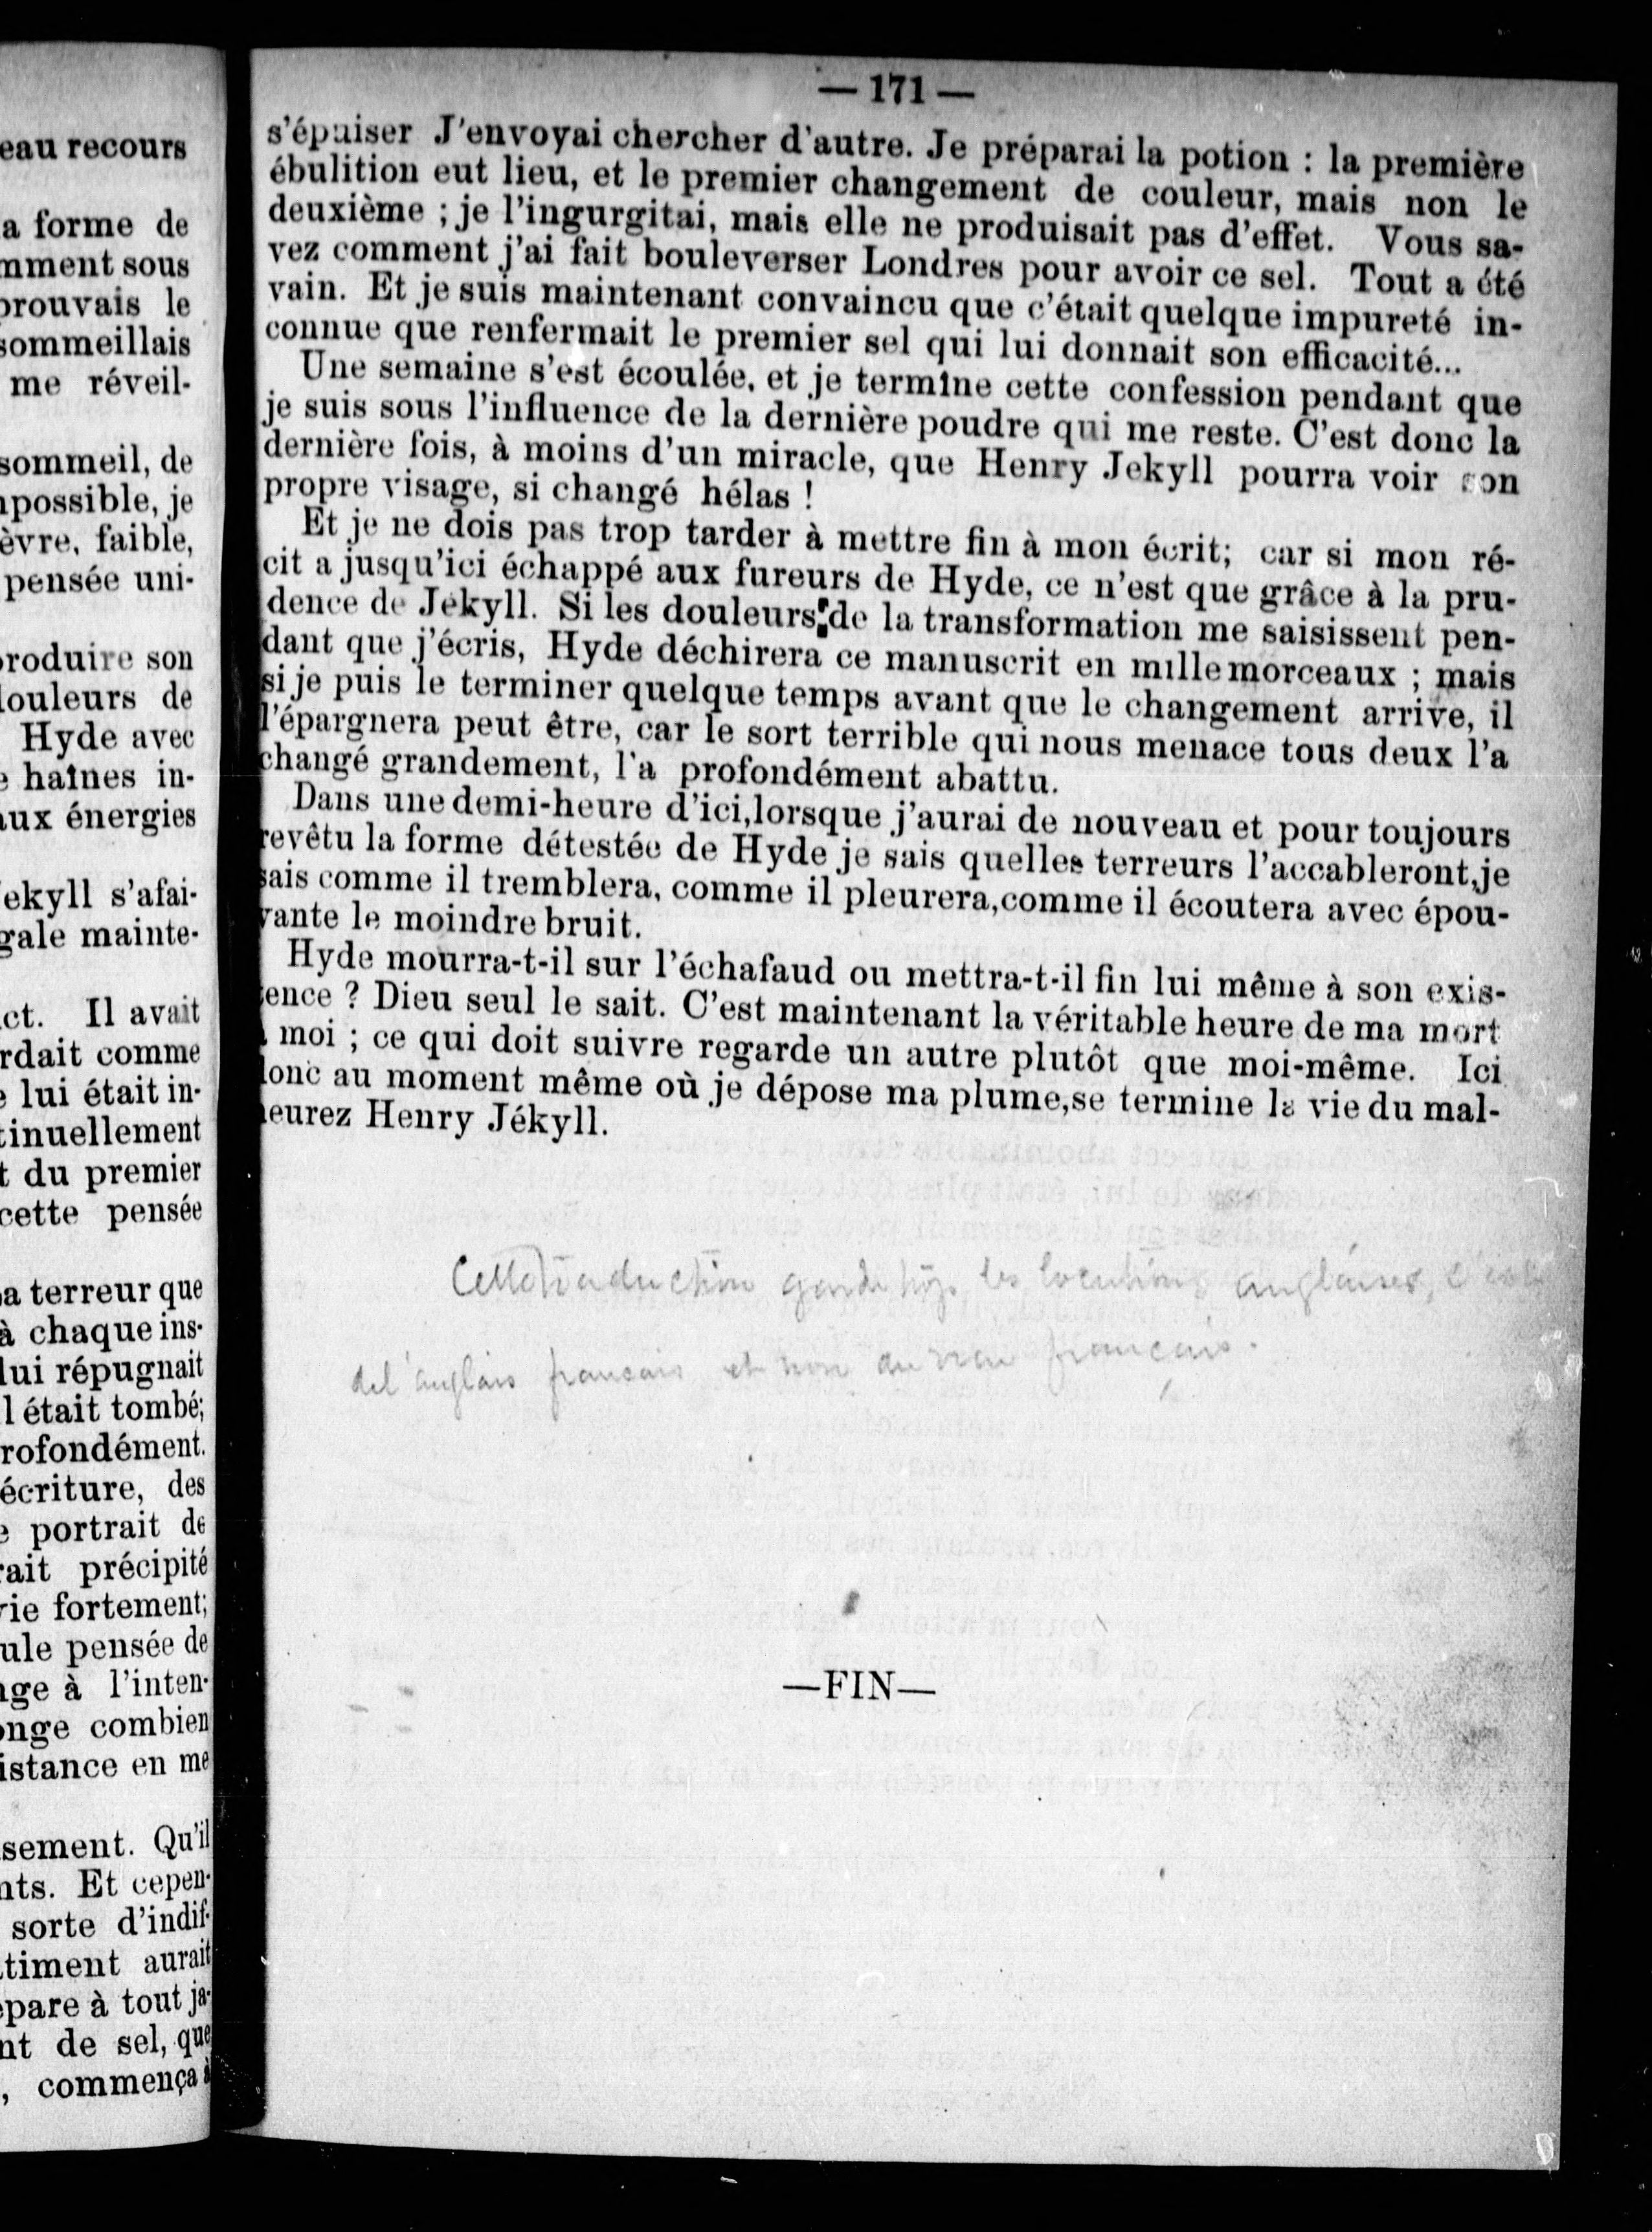 eau recours
a forme de
mment sous
prouvais le
sommeillais
me réveil-
sommeil, de
npossible, je
èvre, faible,
pensée uni-
produire son
douleurs de
Hyde avec
haînes in-
aux énergies
ekyll s'afai-
gale mainte-
ct. Il avait
rdait comme
e lui était in-
tinuellement
t du premier
cette pensée
a terreur que
à chaque ins-
lui répugnait
l était tombé;
rofondément.
écriture, des
e portrait de
rait précipité
vie fortement;
ule pensée de
ge à l'inten-
onge combien
istance en me
sement. Qu'il
nts. Et cepen-
sorte d'indif-
timent aurait
épare à tout ja-
nt de sel, que
, commença à
— 171 —
s'épuiser J'envoyai chercher d'autre. Je préparai la potion : la première
ébulition eut lieu, et le premier changement de couleur, mais non le
deuxième ; je l'ingurgitai, mais elle ne produisait pas d'effet. Vous sa-
vez comment j'ai fait bouleverser Londres pour avoir ce sel. Tout a été
vain. Et je suis maintenant convaincu que c'était quelque impureté in-
connue que renfermait le premier sel qui lui donnait son efficacité...
Une semaine s'est écoulée, et je termine cette confession pendant que
je suis sous l'influence de la dernière poudre qui me reste. C'est donc la
dernière fois, à moins d'un miracle, que Henry Jekyll pourra voir son
propre visage, si changé hélas !
Et je ne dois pas trop tarder à mettre fin à mon écrit; car si mon ré-
cit a jusqu'ici échappé aux fureurs de Hyde, ce n'est que grâce à la pru-
dence de Jekyll. Si les douleurs de la transformation me saisissent pen-
dant que j'écris, Hyde déchirera ce manuscrit en mille morceaux ; mais
si je puis le terminer quelque temps avant que le changement arrive, il
l'épargnera peut être, car le sort terrible qui nous menace tous deux l'a
changé grandement, l'a profondément abattu.
Dans une demi-heure d'ici, lorsque j'aurai de nouveau et pour toujours
revêtu la forme détestée de Hyde je sais quelles terreurs l'accableront, je
sais comme il tremblera, comme il pleurera, comme il écoutera avec épou-
vante le moindre bruit.
Hyde mourra-t-il sur l'échafaud ou mettra-t-il fin lui même à son exis-
tence ? Dieu seul le sait. C'est maintenant la véritable heure de ma mort
à moi ; ce qui doit suivre regarde un autre plutôt que moi-même. Ici
donc au moment même où je dépose ma plume, se termine la vie du mal-
heurez Henry Jékyll.
Cette traduction garde trop les locutions anglaises, c'est
de l'anglais francais et non du vrai français.
—FIN—